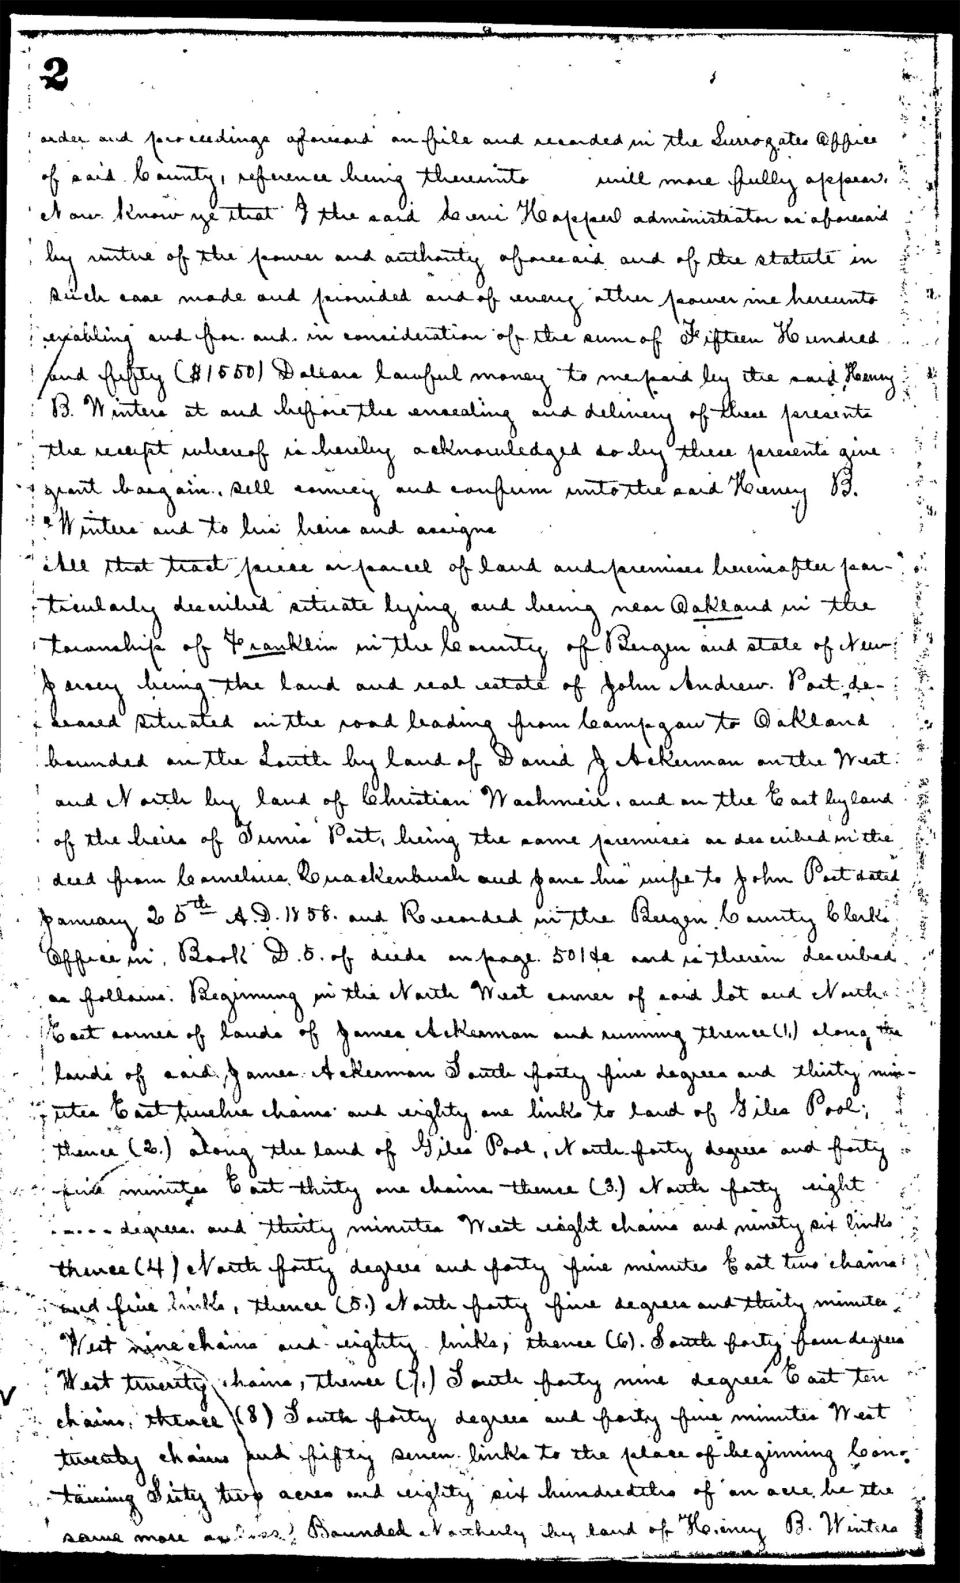 2
order and proceedings aforesaid on file and recorded in the Surrogates Office
of said County, reference being thereunto will more fully appear.
Now know ye that I the said Levi Hopper administrator as aforesaid
by virtue of the power and authority aforesaid and of the statute in
such case made and provided and of every other power me hereunto
enabling and for and in consideration of the sum of Fifteen Hundred
and fifty ($1550) Dollars lawful money to me paid by the said Henry
B. Winters at and before the ensealing and delivery of these presents
the receipt whereof is hereby acknowledged do by these presents give
grant bargain, sell convey and confirm unto the said Henry B.
Winters and to his heirs and assigns
All that tract piece or parcel of land and premises hereinafter par-
ticularly described situate lying and being near Oakland in the
township of Franklin in the County of Bergen and state of New
Jersey being the land and real estate of John Andrew Post de-
ceased situated on the road leading from Campgaw to Oakland
bounded on the South by land of David J Ackerman on the West
and North by land of Christian Wachmeir, and on the East by land
of the heirs of Tunis Post, being the same premises as described in the
deed from Cornelius Quackenbush and Jane his wife to John Post dated
January 25th A.D. 1858. and Recorded in the Bergen County Clerks
Office in Book D. 5. of deeds on page 501 &c and is therein described
as follows. Beginning in the North West corner of said lot and North
East corner of lands of James Ackerman and running thence (1.) along the
lands of said James Ackerman South forty five degrees and thirty min-
utes East twelve chains and eighty one links to land of Giles Pool;
thence (2.) along the land of Giles Pool, North forty degrees and forty
five minutes East thirty one chains thence (3.) North forty eight
---- degrees and thirty minutes West eight chains and ninety six links
thence (4) North forty degrees and forty five minutes East two chains
and five links, thence (5.) North forty five degrees and thirty minutes
West nine chains and eighty links, thence (6). South forty four degrees
West twenty chains, thence (7.) South forty nine degrees East ten
chains, thence (8) South forty degrees and forty five minutes West
twenty chains and fifty seven links to the place of beginning Con-
taining Sixty two acres and eighty six hundredths of an acre be the
same more or less. Bounded Northerly by land of Henry B. Winters